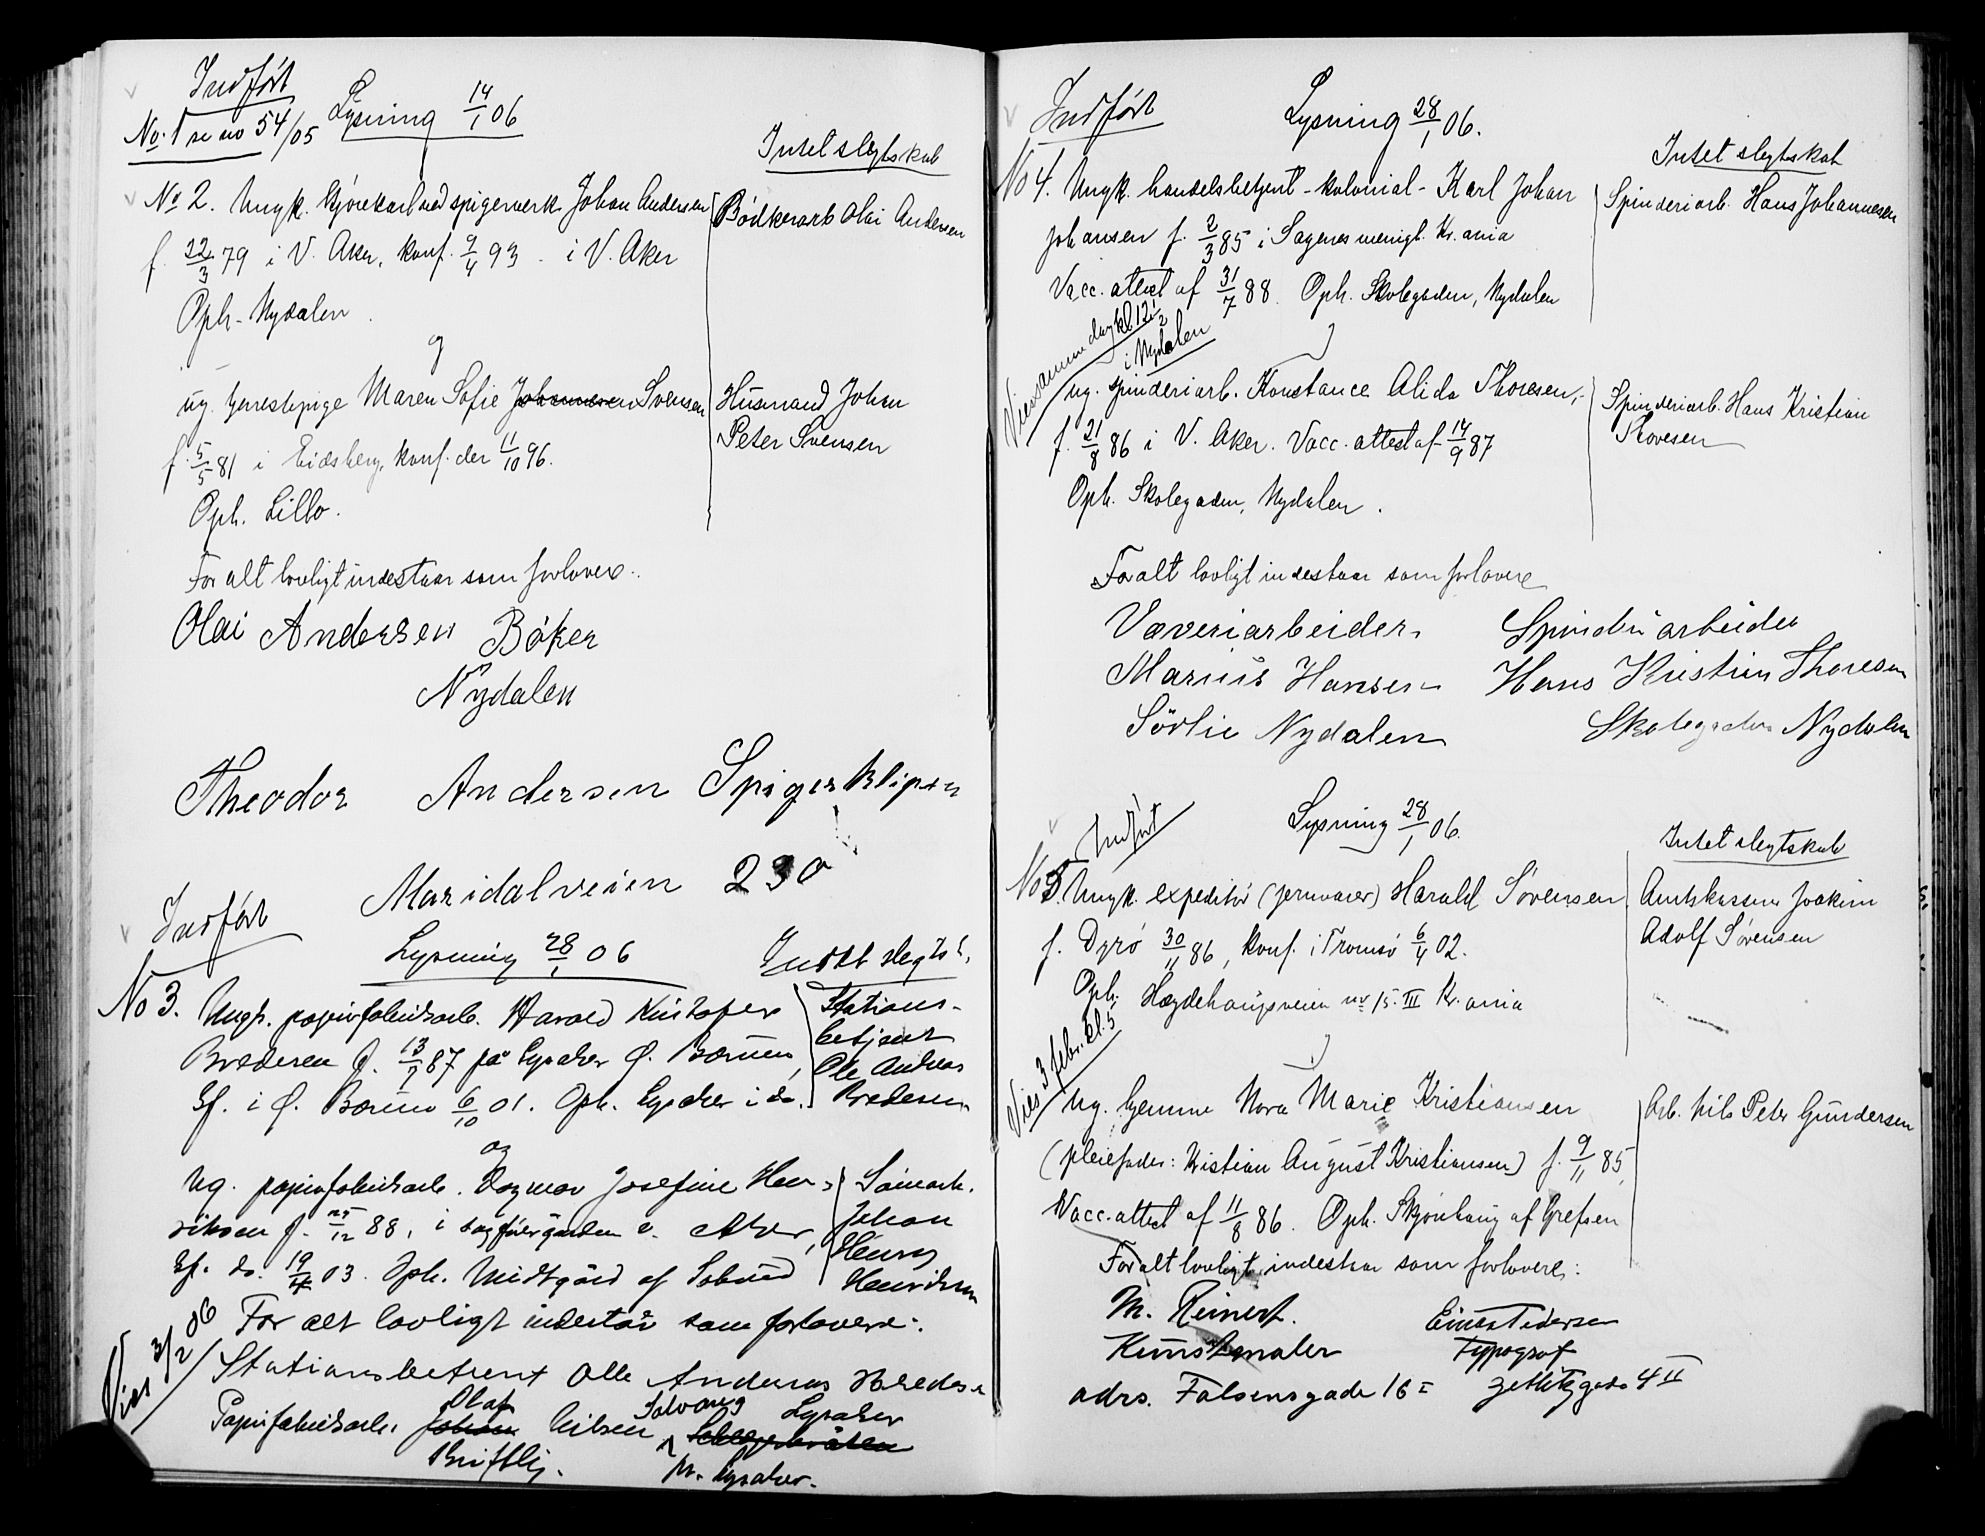 Indført
No. 1 se no 54/05 Lysning 14/1 06
Intet slegtskab
No 2. Ungk. kjørekarl ved spigerverk Johan Andersen
Bødkerarb Olai Andersen
f. 22/3 79 i V. Aker, konf. 9/4 93 i V. Aker
Oph. Nydalen
og
ug. tjenestepige Maren Sofie Johannesen Svensen
Husmand Johan
Peter Svensen
f. 5/5 81 i Eidsberg, konf. der 11/10 96.
Oph. Lillo.
For alt lovligt indestaar som forlovere:
Olai Andersen Bøker
Nydalen
Theodor Andersen Spigerkliper
Maridalveien 230
Indført
Lysning 28/1 06
Intet slegtsk.
No 3. Ungk. papirfabrikarb. Harald Kristofer
Bredesen f. 13/7 87 på Lysaker Ø. Bærum,
Kf. i Ø. Bærum 6/10 01. Oph. Lysaker i do.
Stations-
betjent
Ole Andreas
Bredesen
og
Ug. papirfabrikarb. Dagmar Josefine Hen-
riksen f. 25/12 88, i Aker,
Kf. do. 03. Oph. Midtgård af
Johan
Henrik
Henriksen
Vies 3/2 06
For alt lovligt indestår som forlovere:
Stationsbetjent Olle Andreas Bredesen
Lysaker
Papirfabrikarb. Johan Olaf Nilsen Solvang
Skriftlig. pr. Lysaker.
Indført
Lysning 28/1 06.
Intet slegtskab
No 4. Ungk. handelsbetjent - kolonial - Karl Johan
Johansen f. 2/3 85 i Sagenes menigh. Kr.ania
Spinderiarb. Hans Johannesen
Vacc. attest af 31/7 88. Oph. Skolegaden, Nydalen
Vies samme dag kl 12 1/2
i Nydalen
ug. spinderiarb. Konstance Alida Thoresen,
Spinderiarb. Hans Kristian
Thoresen
f. 21/8 86 i V. Aker. Vacc. attest af 14/9 87
Oph. Skolegaden, Nydalen.
For alt lovligt indestaar som forlovere
Væveriarbeider Spinderiarbeider
Marius Hansen Hans Kristian Thoresen
Sörlie Nydalen Skolegaden Nydalen
Indført
Lysning 28/1 06.
Intet slegtskab
No 5. Ungk. expeditør (jernvarer) Harald Sørensen
Amtskasserer Joakim
Adolf Sørensen
f. Dyrø 30/11 86, konf. i Tromsø 6/4 02.
Oph. Hægdehaugsveien nr 15 III Kr.ania
Vies 3 febr. kl. 5
Ug. hjemme Nora Marie Kristiansen
Arb. Nils Peter Gundersen
(pleiefader: Kristian August Kristiansen) f. 9/11 85,
Vacc. attest af 11/8 86. Oph. Skjønhaug af Grefsen
For alt lovligt indestaar som forlovere:
M. Reinert. Einar Pedersen
Kunstmaler Typograf
adrs. Falsensgade 16 I Zetlitzgade 4 II